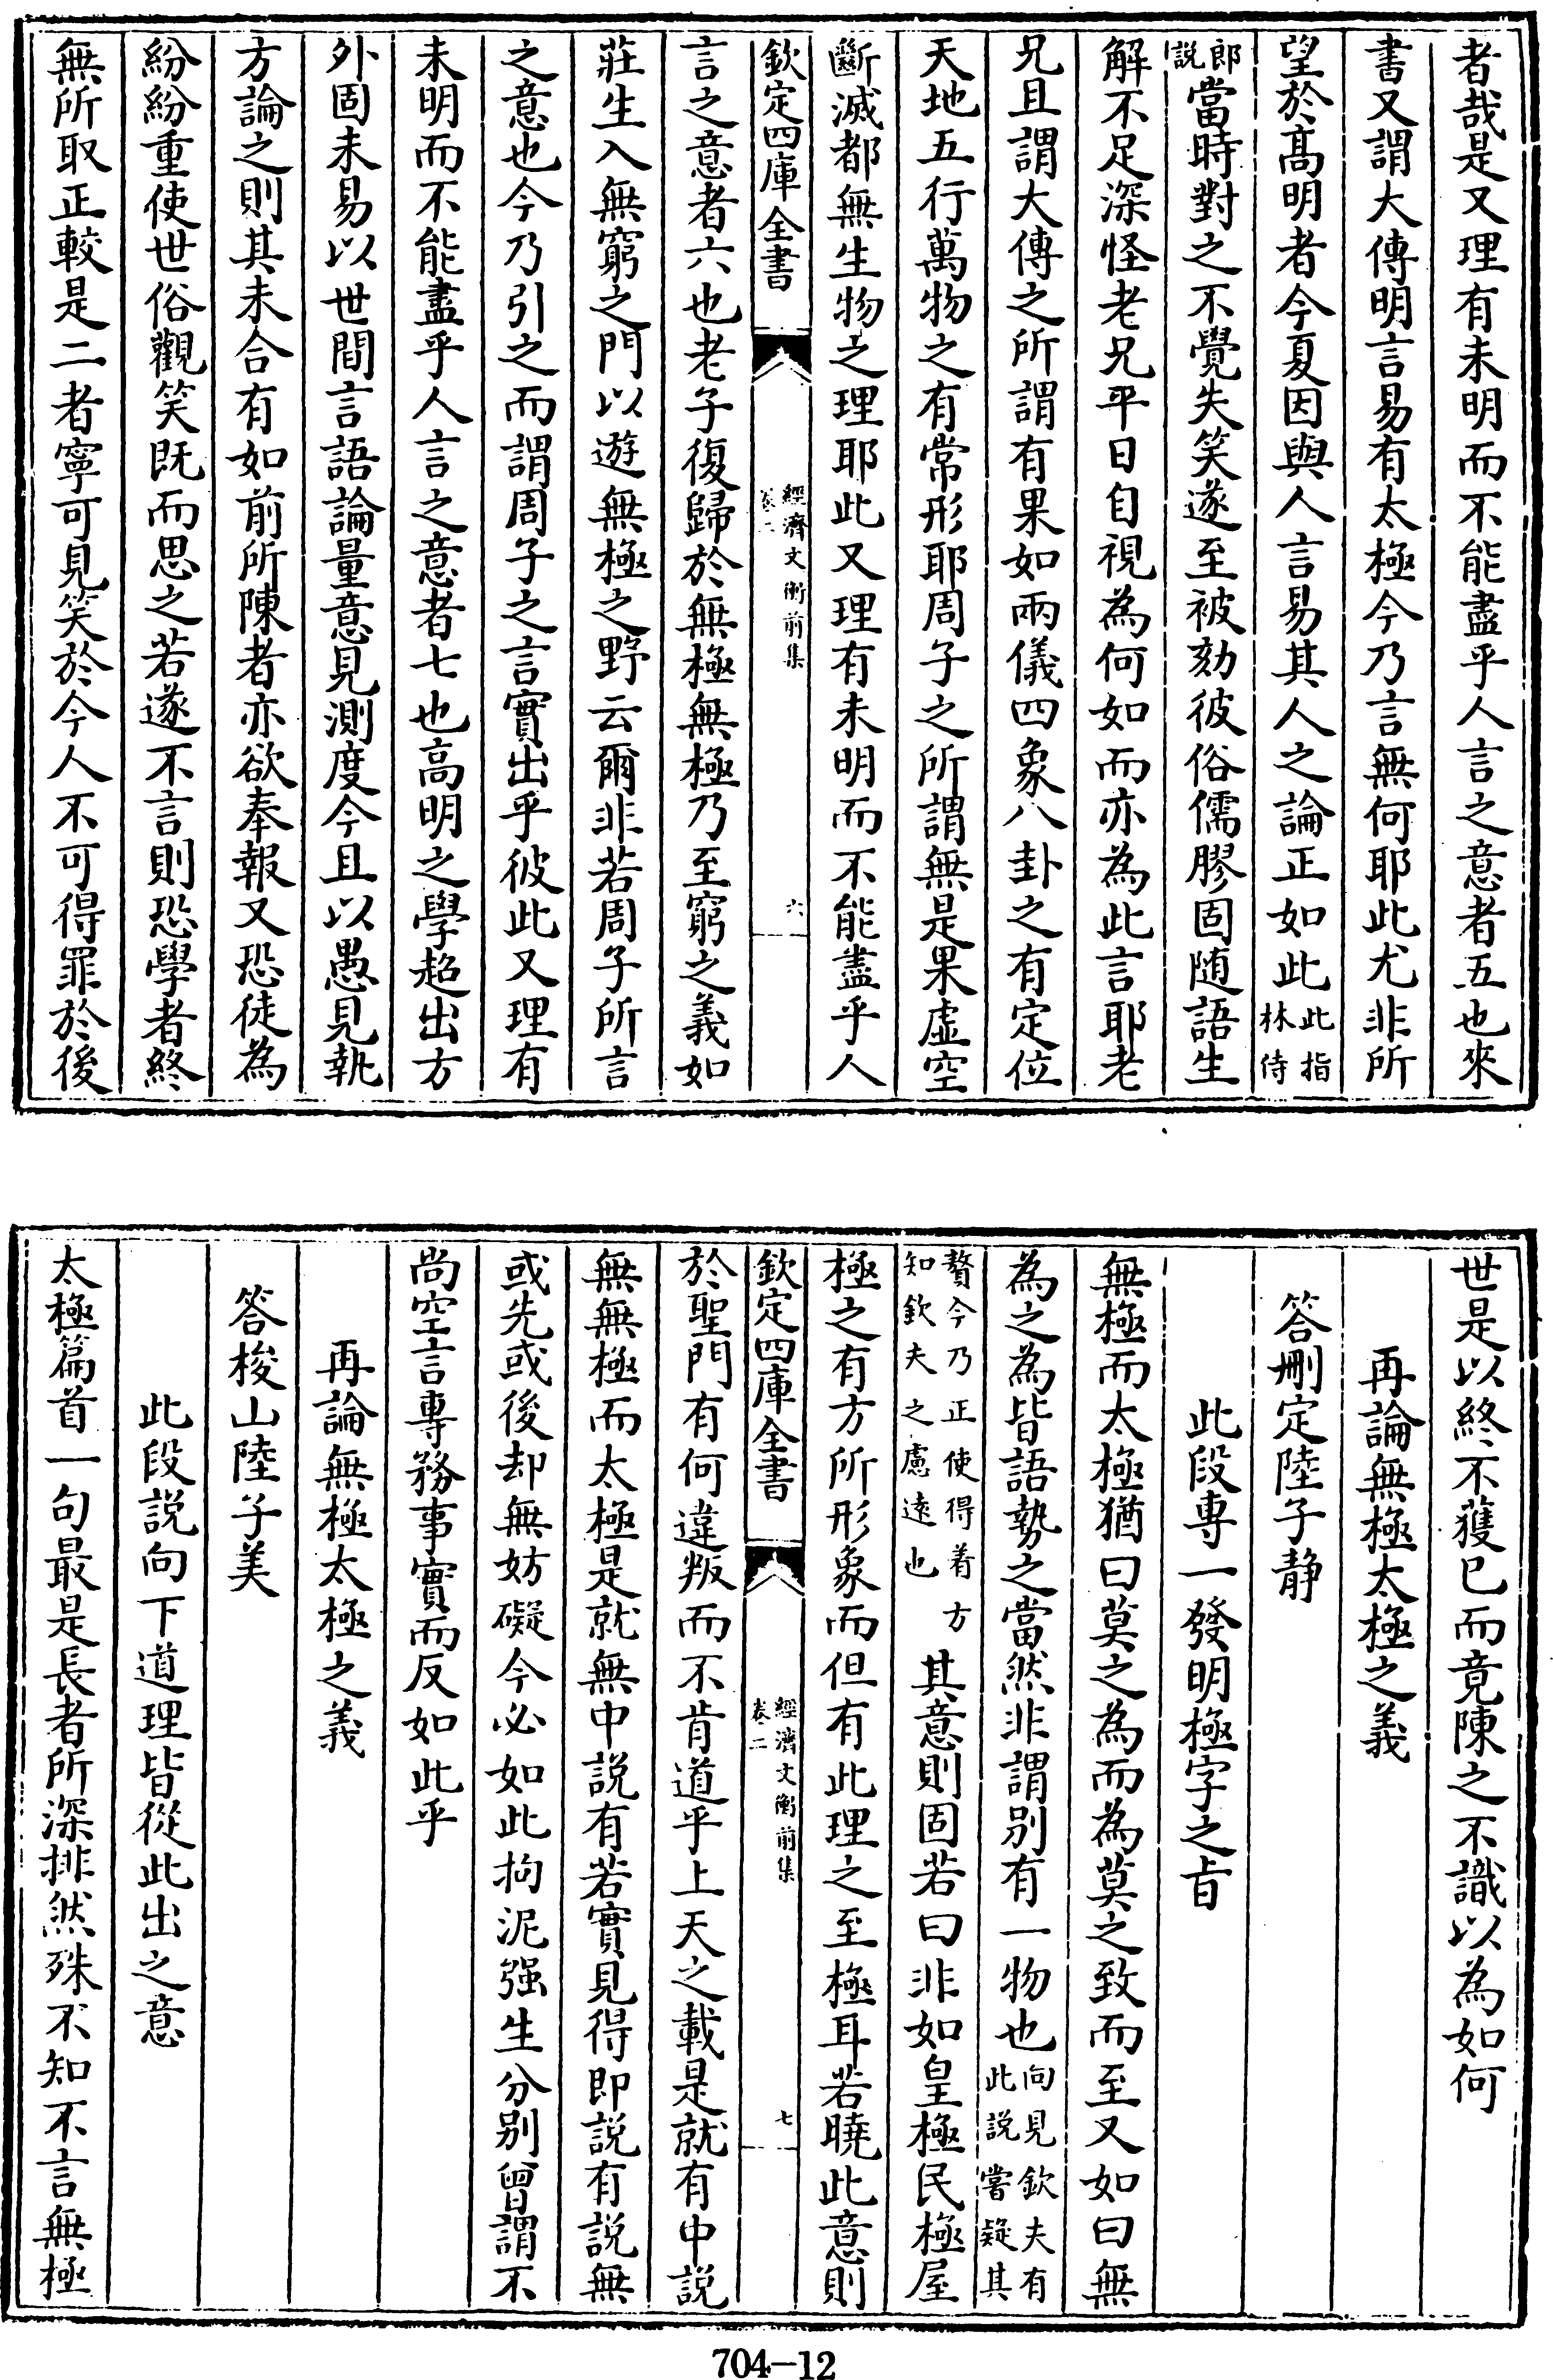 者哉是又理有未明而不能盡乎人言之意者五也來
書又謂大傳明言易有太極今乃言無何耶此尤非所
望於髙明者今夏因與人言易其人之論正如此此指林侍
郎説當時對之不覺失笑遂至被劾彼俗儒膠固随語生
解不足深怪老兄平日自視為何如而亦為此言耶老
兄且謂大傳之所謂有果如兩儀四象八卦之有定位
天地五行萬物之有常形耶周子之所謂無是果虚空
斷滅都無生物之理耶此又理有未明而不能盡乎人
欽定四庫全書
經濟文衡前集
卷二
六
言之意者六也老子復歸於無極無極乃至窮之義如
莊生入無窮之門以遊無極之野云爾非若周子所言
之意也今乃引之而謂周子之言實出乎彼此又理有
未明而不能盡乎人言之意者七也高明之學超出方
外固未易以世間言語論量意見測度今且以愚見執
方論之則其未合有如前所陳者亦欲奉報又恐徒為
紛紛重使世俗觀笑既而思之若遂不言則恐學者終
無所取正較是二者寧可見笑於今人不可得罪於後
世是以終不獲已而竟陳之不識以為如何
再論無極太極之義
答刪定陸子静
此段專一發明極字之㫖
無極而太極猶曰莫之為而為莫之致而至又如曰無
為之為皆語勢之當然非謂别有一物也向見欽夫有此説嘗疑其
贅今乃正使得着方知欽夫之慮遠也其意則固若曰非如皇極民極屋
極之有方所形象而但有此理之至極耳若曉此意則
欽定四庫全書
經濟文衡前集
卷二
七
於聖門有何違叛而不肯道乎上天之載是就有中説
無無極而太極是就無中説有若實見得即説有説無
或先或後却無妨礙今必如此拘泥强生分别曾謂不
尚空言專務事實而反如此乎
再論無極太極之義
答梭山陸子美
此段説向下道理皆從此出之意
太極篇首一句最是長者所深排然殊不知不言無極
704-12